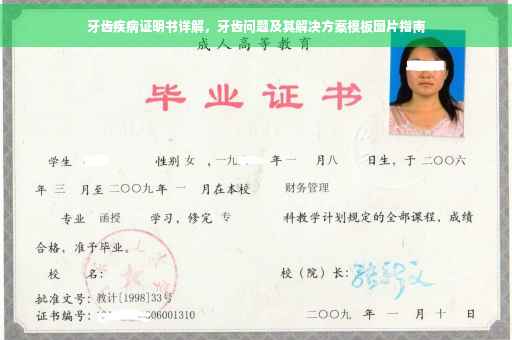 牙齿疾病证明书详解，牙齿问题及其解决方案模板图片指南
成人高等教育
毕业证书
学生 性别 女 ，一九 年 一 月八 日生，于 二〇〇六
年 三 月至 二〇〇九 年 一 月在本校 财务管理
专业 函授 学习，修完 专 科教学计划规定的全部课程，成绩
合格，准予毕业。
校 名： 校（院）长：
批准文号：教计[1998]33号
证书编号： 06001310 二〇〇九 年 一 月 十 日